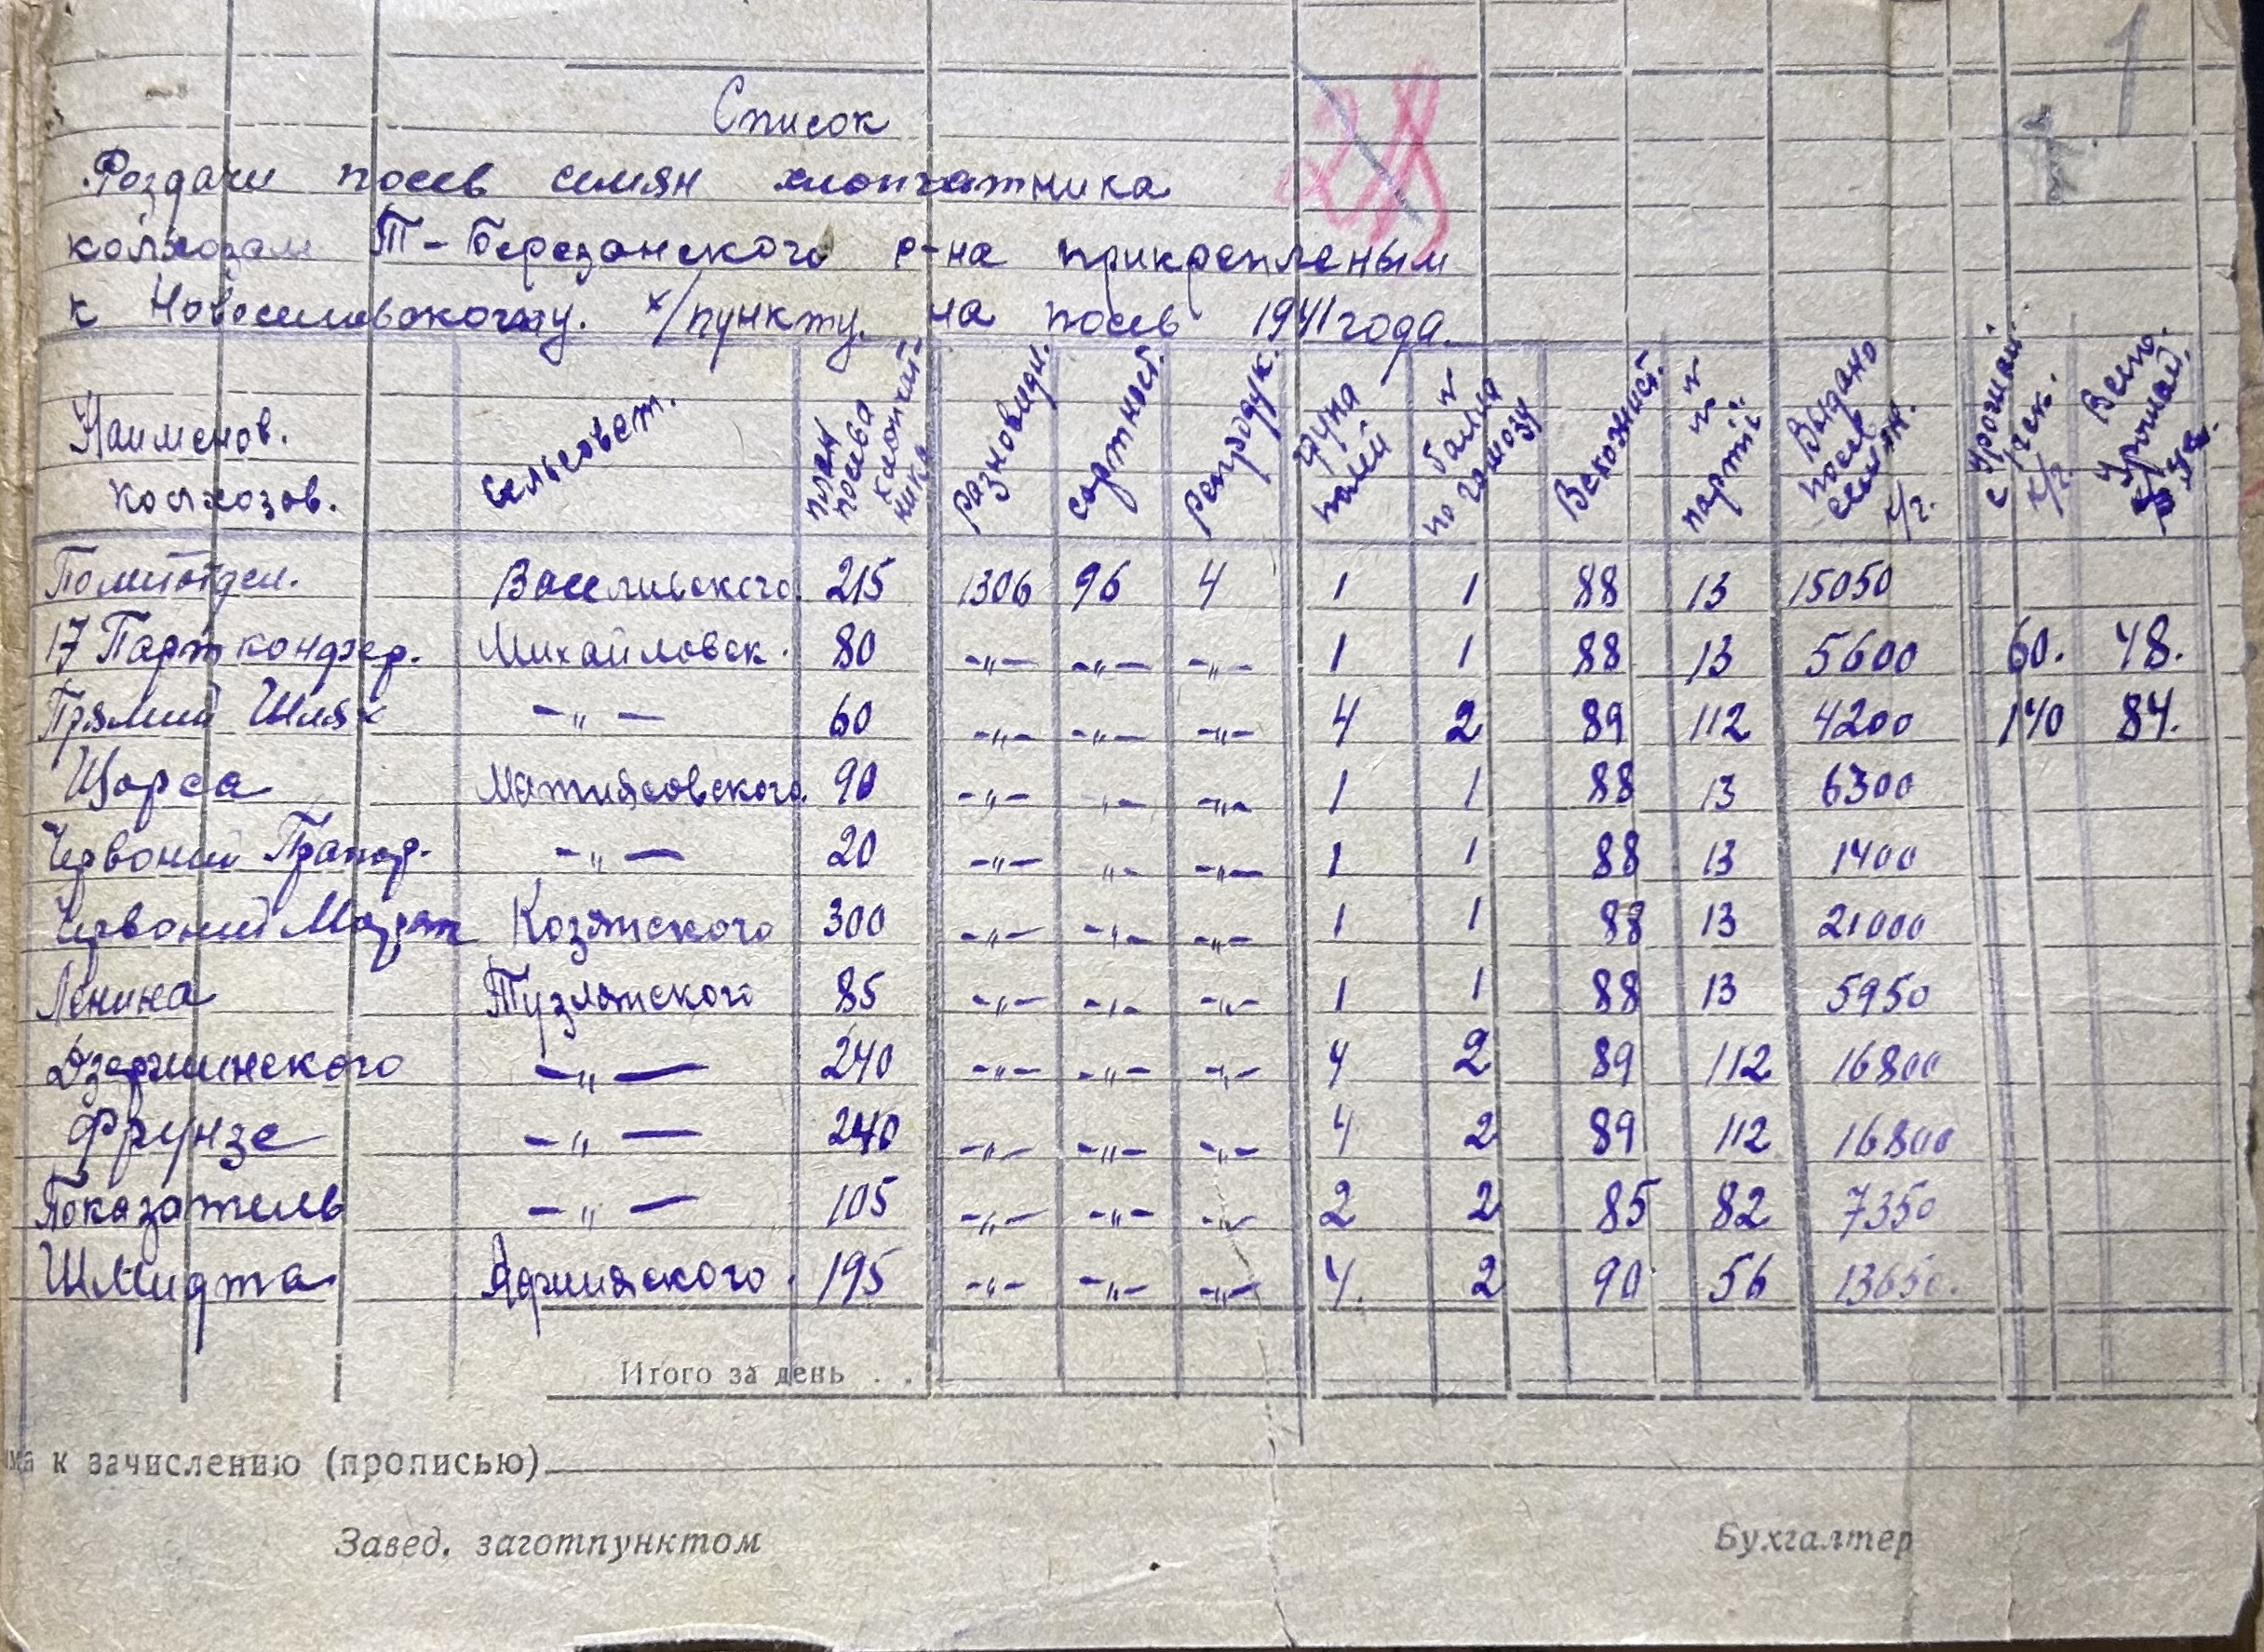 1
28
Список
Роздачи посев семян хлопчатника
колхозам Т-Березанского р-на прикрепленым
к х/пункту. на посев 1941 года.
Наименов. колхозов. Сельсовет. план посева хлопчатника Разновидн. Сортност. Репродук. група полей № балла по гомозу Всхожист. № № партй Выдано посев семян. к/г. Урожай с 1 гек. к/г. Всего Урожай.
Политотдел. Василивского 215 1306 96 4 1 1 88 13 15050
17 Парт конфер. Михайловск. 80 -„- -„- -„- 1 1 88 13 5600 60. 48.
Прямий Шлях -„- 60 -„- -„- -„- 4 2 89 112 4200 140 84.
Щорса Матиясовского. 90 -„- -„- -„- 1 1 88 13 6300
Червоний Прапор. -„- 20 -„- „- -„- 1 1 88 13 1400
Червоний Маяк Козятского 300 -„- -„- -„- 1 1 88 13 21000
Ленина Тузлятского 85 -„- -„- -„- 1 1 88 13 5950
Дзержинского -„- 240 -„- -„- -„- 4 2 89 112 16800
Фрунзе -„- 240 -„- -„- -„- 4 2 89 112 16800
Показатель -„- 105 -„- -„- -„- 2 2 85 82 7350
Шмидта Аджияского. 195 -„- -„- -„- 4. 2 90 56 13650.
Итого за день . .
ма к зачислению (прописью)
Завед. заготпунктом Бухгалтер